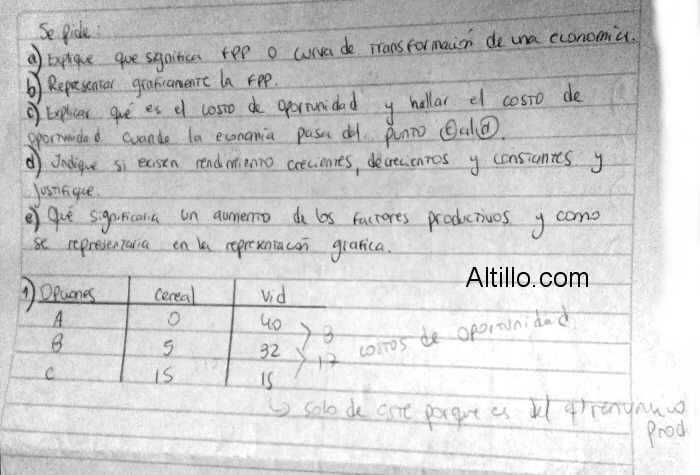 Se pide:
a) Explique que significa FPP o curva de transformación de una economía.
b) Representar graficamente la FPP.
c) Explicar qué es el costo de oportunidad y hallar el costo de
oportunidad cuando la economía pasa del punto al
d) Indique si existen rendimiento crecientes, decrecientos y constantes y
justifique.
e) Qué significaria un aumento de los factores productivos y como
se representaria en la representación grafica.
Altillo.com
1) Opciones Cereal Vid
A 0 40
B 5 32 > 8 costos de oportunidad
C 15 15 > 17
↳ solo de este porque es del
prod